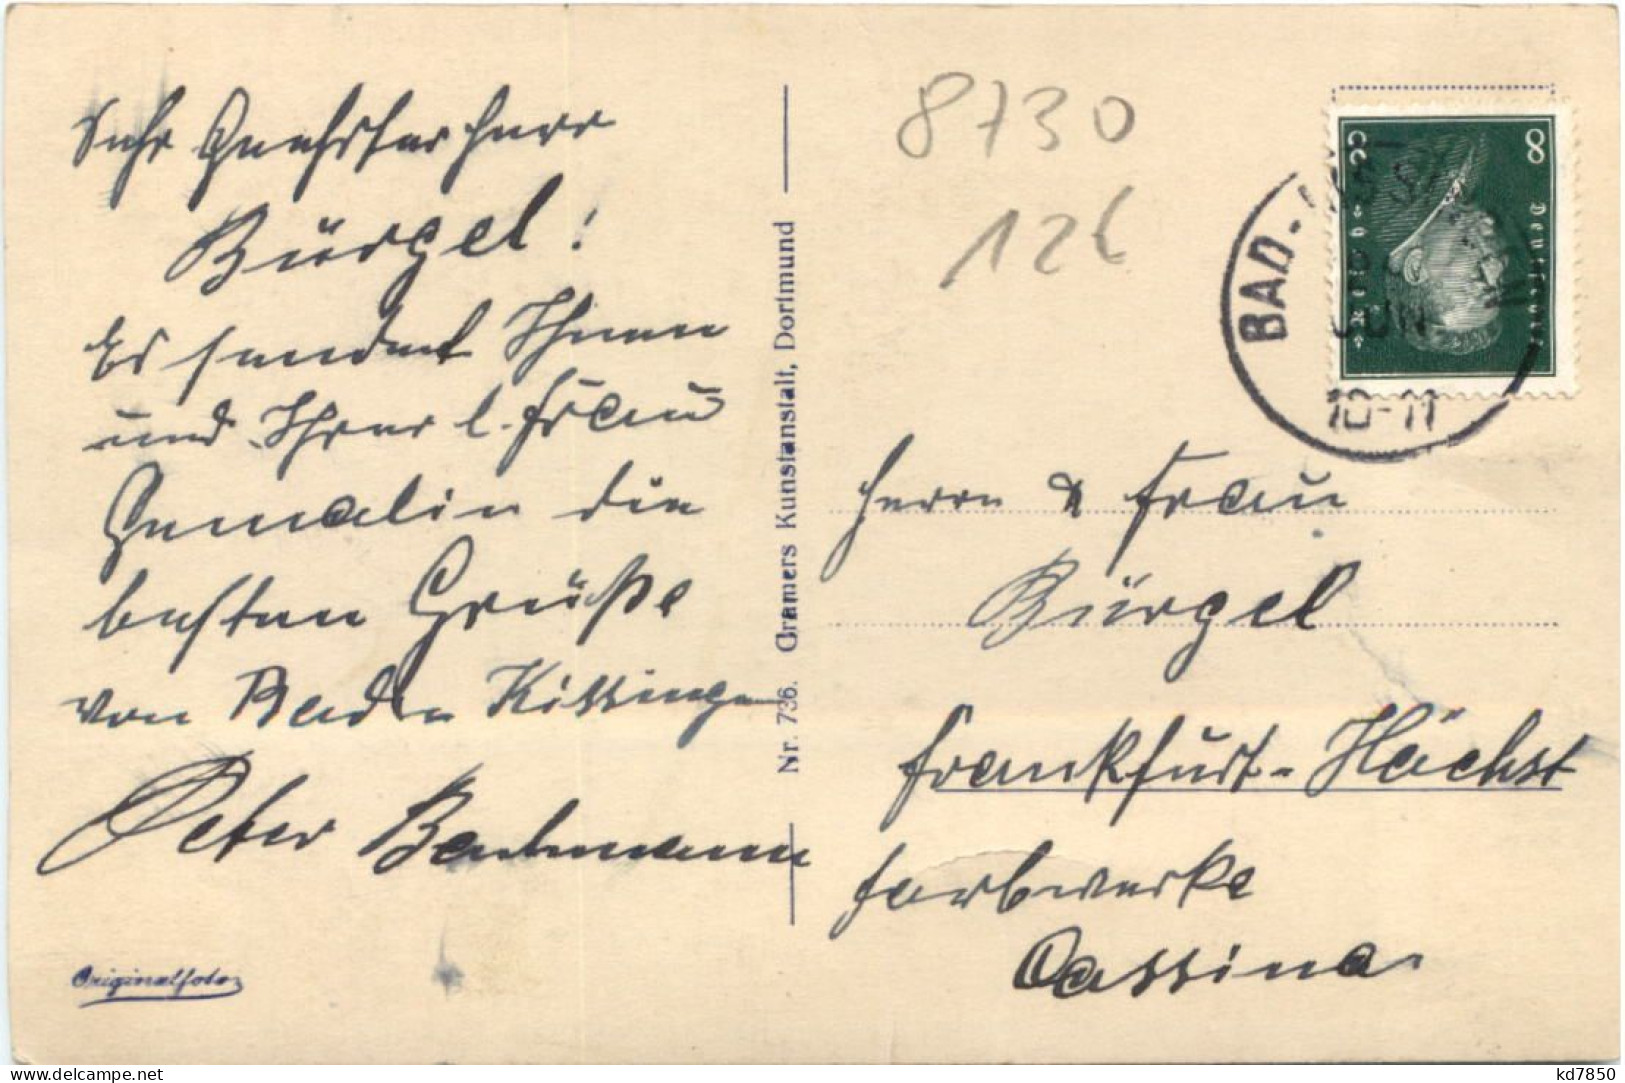 Sehr Geehrter Herr
Bürgel!
Es sendet Ihnen
und Ihrer l. Frau
Gemalin die
besten Grüße
von Baden Kissingen
Peter Bachmann
Originalfoto
Nr. 736. Gramers Kunstanstalt, Dortmund
8730
126
8
Deutsches Reich
BAD-
JUN
10-11
Herrn & Frau
Bürgel
Frankfurt-Höchst
Farbwerke
Cassino
kd7850